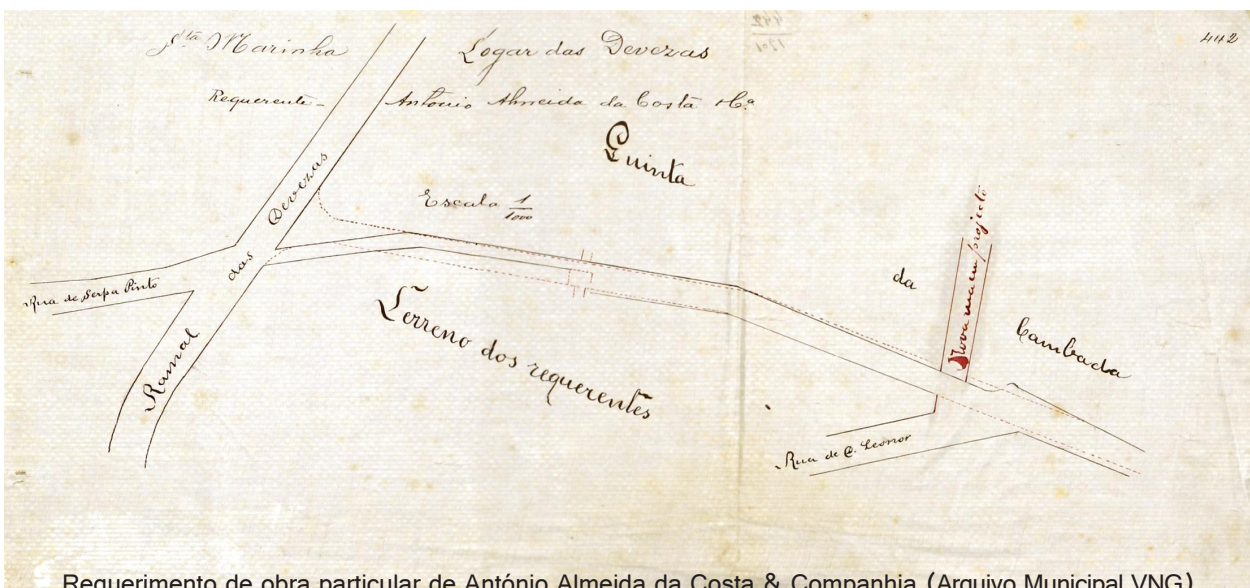 Sta Marinha
Logar das Devezas
442
Requerente - Antonio Almeida da Costa & Ca
Quinta
Escala 1/1000
Ramal das Devezas
Rua de Serpa Pinto
Terreno dos requerentes
da
Nova rua em projecto
Cambada
Rua de D. Leonor
Requerimento de obra particular de António Almeida da Costa & Companhia (Arquivo Municipal VNG)